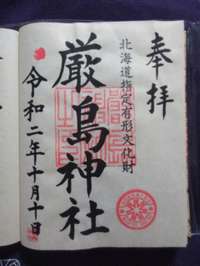 奉拝
北海道指定有形文化財
厳島神社
令和二年十月十日